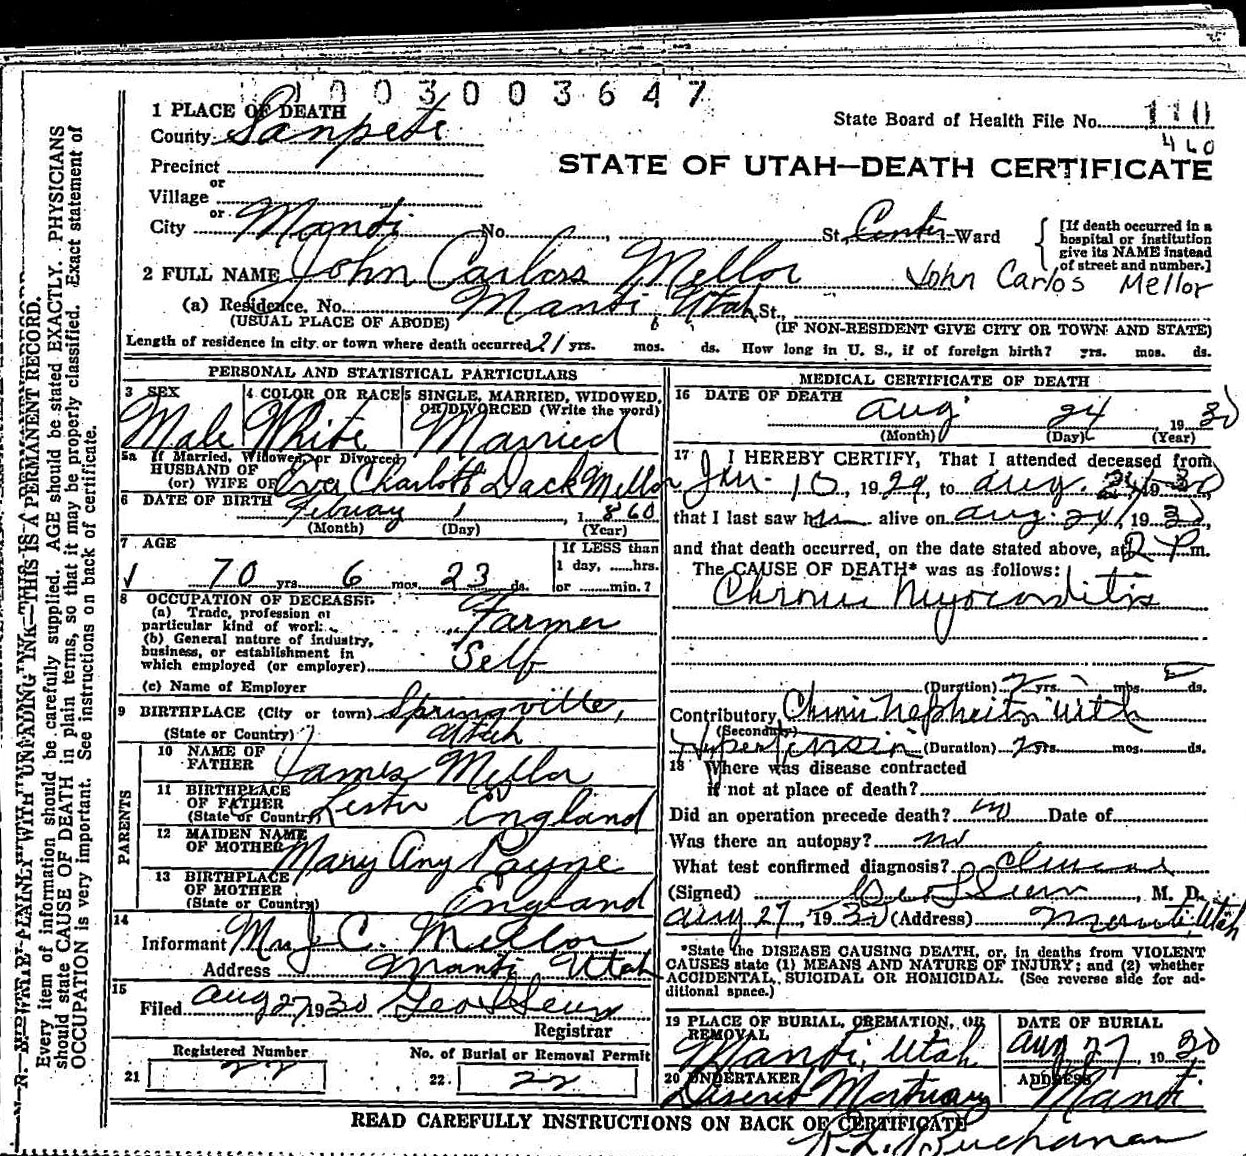 1003003647
1 PLACE OF DEATH
County Sanpete
State Board of Health File No. 110
460
Precinct
STATE OF UTAH—DEATH CERTIFICATE
or
Village
or
City Manti No. , St. Center Ward
[If death occurred in a
hospital or institution
give its NAME instead
of street and number.]
2 FULL NAME John Carloss Mellor John Carlos Mellor
(a) Residence. No. Manti, Utah St.,
(USUAL PLACE OF ABODE) (IF NON-RESIDENT GIVE CITY OR TOWN AND STATE)
Length of residence in city or town where death occurred 21 yrs. mos. ds. How long in U. S., if of foreign birth? yrs. mos. ds.
PERSONAL AND STATISTICAL PARTICULARS
3 SEX
Male
4 COLOR OR RACE
White
5 SINGLE, MARRIED, WIDOWED,
OR DIVORCED (Write the word)
Married
5a If Married, Widowed, or Divorced
HUSBAND OF
(or) WIFE OF Eva Charlott Dack Mellor
6 DATE OF BIRTH Februay 1, 1860
(Month) (Day) (Year)
7 AGE
70 yrs 6 mos. 23 ds.
If LESS than
1 day, ......hrs.
or ........min.?
8 OCCUPATION OF DECEASED
(a) Trade, profession or
particular kind of work Farmer
(b) General nature of industry,
business, or establishment in
which employed (or employer) Self
(c) Name of Employer
9 BIRTHPLACE (City or town) Springville,
(State or Country) Utah
PARENTS
10 NAME OF
FATHER James Mellor
11 BIRTHPLACE
OF FATHER
(State or Country) Lester England
12 MAIDEN NAME
OF MOTHER Mary Any Payne
13 BIRTHPLACE
OF MOTHER
(State or Country) England
14
Informant Mrs J. C. Mellor
Address Manti Utah
15
Filed Aug 27 1930
Registrar
Registered Number
21 22
No. of Burial or Removal Permit
22. 22
MEDICAL CERTIFICATE OF DEATH
16 DATE OF DEATH
Aug 24, 1930
(Month) (Day) (Year)
17 I HEREBY CERTIFY, That I attended deceased from
Jan. 10, 1929, to Aug. 24 1930
that I last saw him alive on Aug. 24, 1930,
and that death occurred, on the date stated above, at 2 P. m.
The CAUSE OF DEATH* was as follows:
Chronic Myocarditis
(Duration) 2 yrs. mos. ds.
Contributory Chronic Nephritis with
(Secondary)
Hypertension (Duration) 2 yrs. mos. ds.
18 Where was disease contracted
if not at place of death?
Did an operation precede death? no Date of
Was there an autopsy? no
What test confirmed diagnosis? Clinical
(Signed) , M. D.
Aug 27, 1930 (Address) Manti, Utah
*State the DISEASE CAUSING DEATH, or, in deaths from VIOLENT
CAUSES state (1) MEANS AND NATURE OF INJURY; and (2) whether
ACCIDENTAL, SUICIDAL OR HOMICIDAL. (See reverse side for ad-
ditional space.)
19 PLACE OF BURIAL, CREMATION, OR
REMOVAL
Manti, Utah
DATE OF BURIAL
Aug 27, 1930
20 UNDERTAKER
Deseret Mortuary
ADDRESS
Manti
READ CAREFULLY INSTRUCTIONS ON BACK OF CERTIFICATE
R. L. Buchanan
N. B.—WRITE PLAINLY WITH UNFADING INK—THIS IS A PERMANENT RECORD.
Every item of information should be carefully supplied. AGE should be stated EXACTLY. PHYSICIANS
should state CAUSE OF DEATH in plain terms, so that it may be properly classified. Exact statement of
OCCUPATION is very important. See instructions on back of certificate.